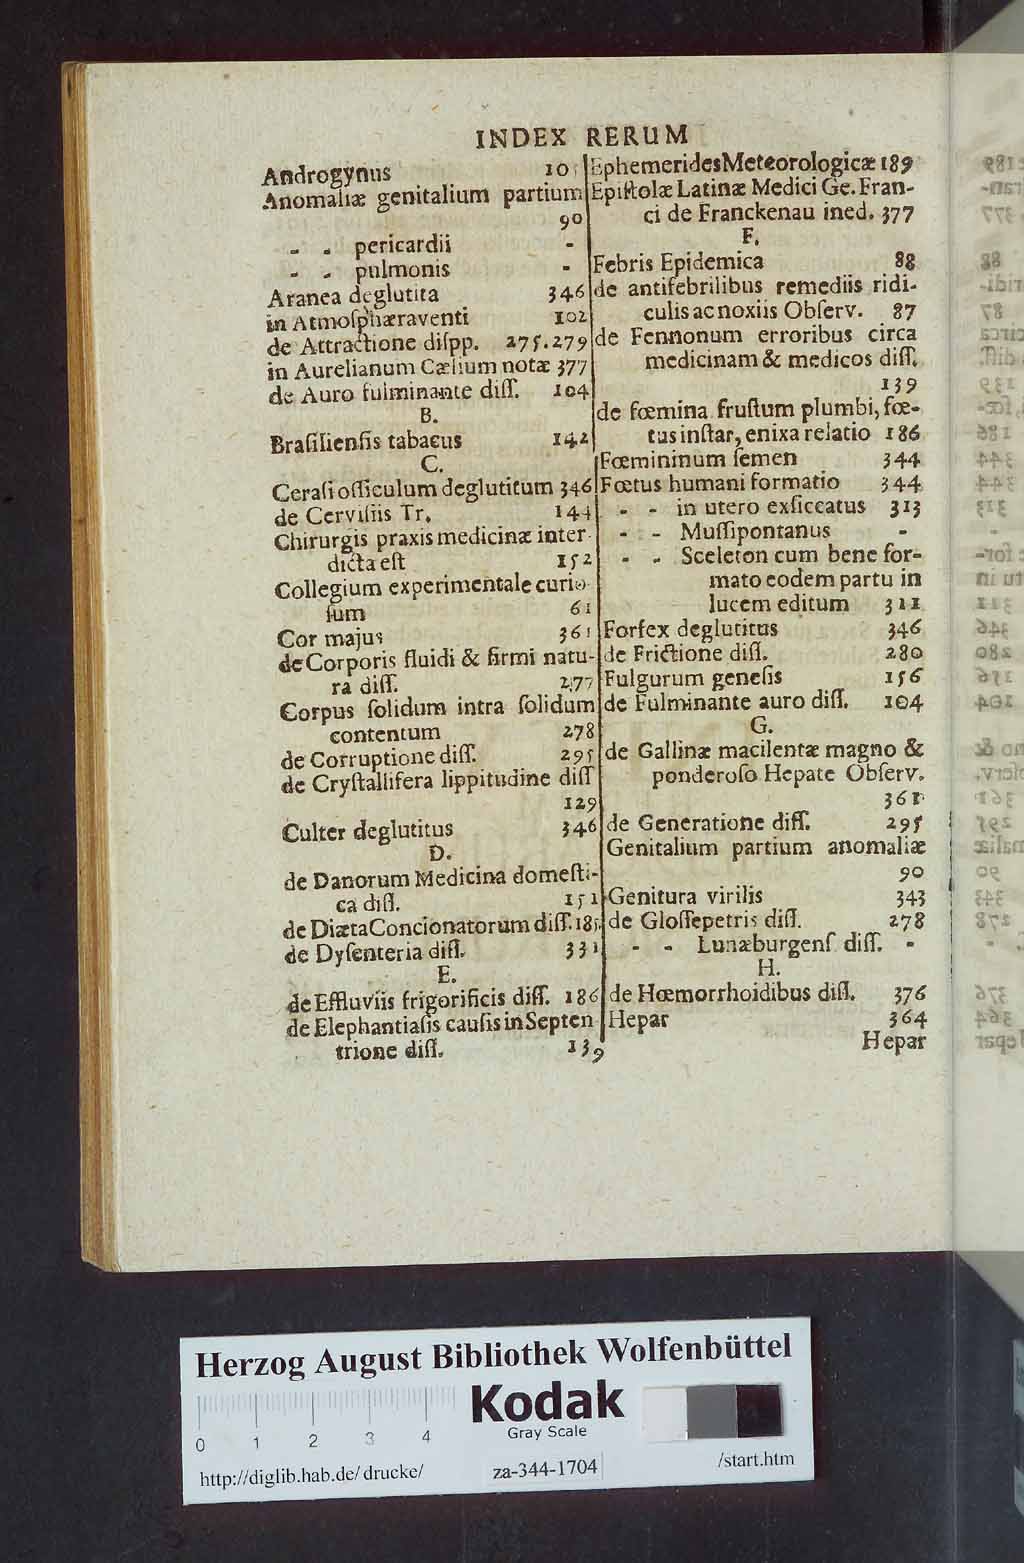 INDEX RERUM
Androgynus 105
Anomaliæ genitalium partium
90
- - pericardii -
- - pulmonis -
Aranea deglutita 346
in Atmoſphæraventi 102
de Attractione diſpp. 275.279
in Aurelianum Cælium notæ 377
de Auro fulminante diſſ. 104
B.
Braſilienſis tabacus 142
C.
Ceraſi oſſiculum deglutitum 346
de Cerviſiis Tr. 144
Chirurgis praxis medicinæ inter-
dicta eſt 152
Collegium experimentale curio-
ſum 61
Cor majus 361
de Corporis fluidi & firmi natu-
ra diſſ. 277
Corpus ſolidum intra ſolidum
contentum 278
de Corruptione diſſ. 295
de Cryſtallifera lippitudine diſſ
129
Culter deglutitus 346
D.
de Danorum Medicina domeſti-
ca diſſ. 151
de Diæta Concionatorum diſſ. 185
de Dyſenteria diſſ. 331
E.
de Effluviis frigorificis diſſ. 186
de Elephantiaſis cauſis in Septen-
trione diſſ. 139
Ephemerides Meteorologicæ 189
Epiſtolæ Latinæ Medici Ge. Fran-
ci de Franckenau ined. 377
F.
Febris Epidemica 88
de antifebrilibus remediis ridi-
culis ac noxiis Obſerv. 87
de Fennonum erroribus circa
medicinam & medicos diſſ.
139
de fœmina fruſtum plumbi, fœ-
tus inſtar, enixa relatio 186
Fœmininum ſemen 344
Fœtus humani formatio 344
- - in utero exſiccatus 313
- - Muſſipontanus -
- - Sceleton cum bene for-
mato eodem partu in
lucem editum 311
Forfex deglutitus 346
de Frictione diſſ. 280
Fulgurum geneſis 156
de Fulminante auro diſſ. 104
G.
de Gallinæ macilentæ magno &
ponderoſo Hepate Obſerv.
361
de Generatione diſſ. 295
Genitalium partium anomaliæ
90
Genitura virilis 343
de Gloſſepetris diſſ. 278
- - Lunæburgenſ diſſ. -
H.
de Hœmorrhoidibus diſſ. 376
Hepar 364
Hepar
Herzog August Bibliothek Wolfenbüttel
Kodak
Gray Scale
0 1 2 3 4
http://diglib.hab.de/drucke/ za-344-1704 /start.htm